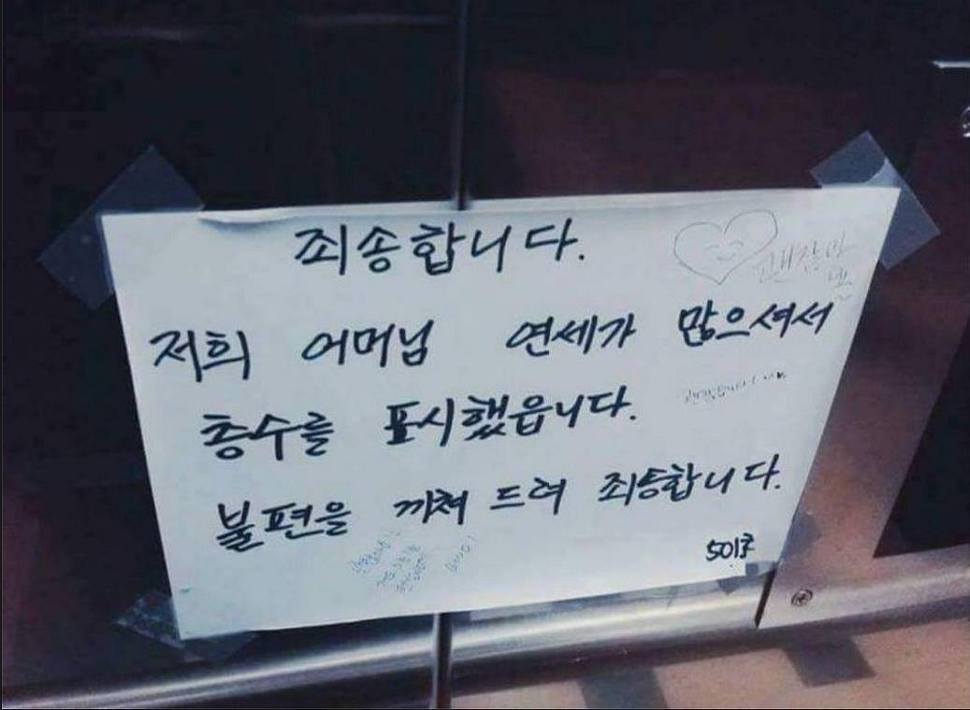 죄송합니다.
괜찮아
요
저희 어머님 연세가 많으셔서
층수를 표시했읍니다.
불편을 끼쳐 드려 죄송합니다.
501호